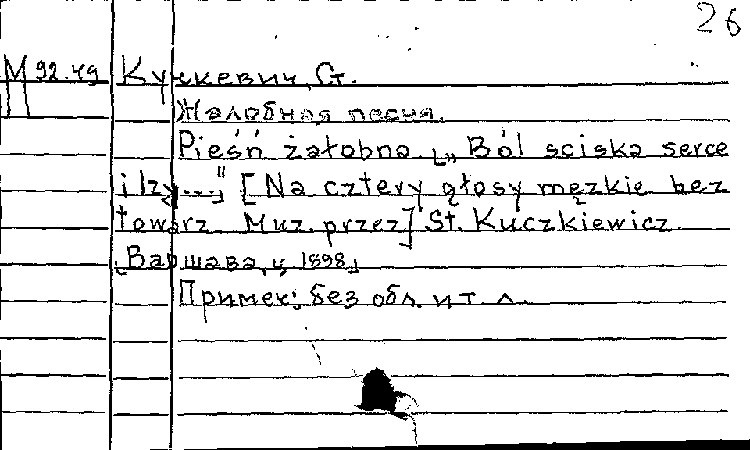 26
М 92.49 Кучкевич, Ст.
Жалобная песня.
Pieśń żałobna. [„Ból sciska serce
i łzy..."] [Na cztery głosy męzkie bez
towarz. Muz. przez] St. Kuczkiewicz.
[Варшава, ц. 1898]
Примеч: без обл. и т. л.